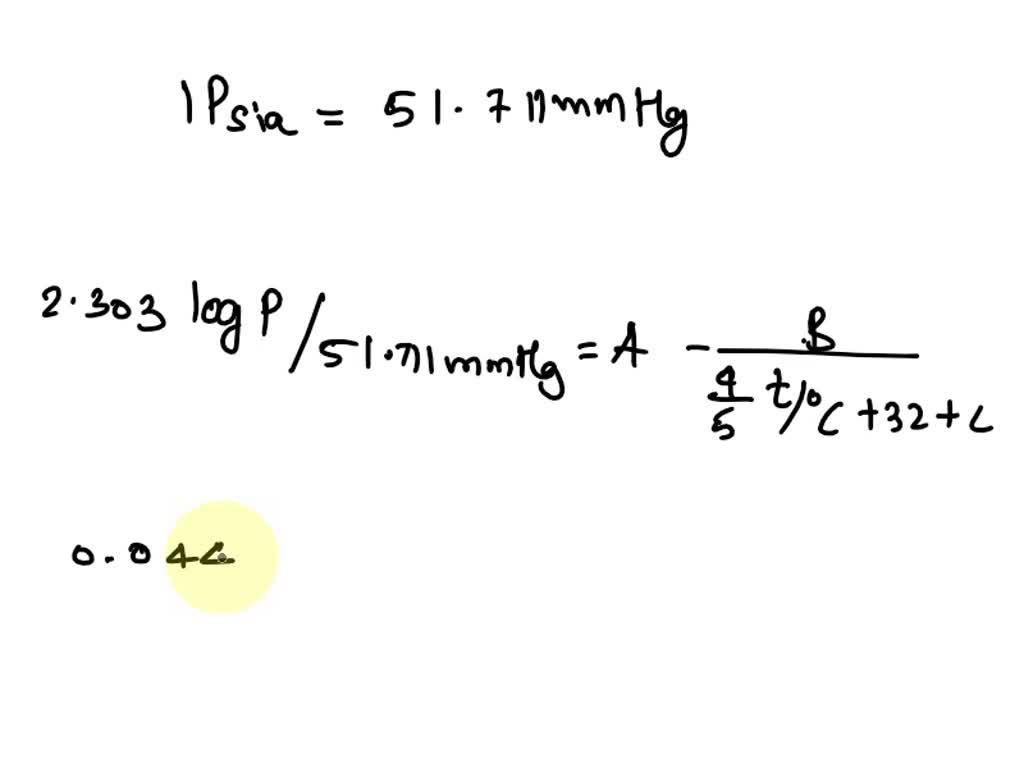 1 Psia = 51.711 mmHg
2.303 log P / 51.711 mmHg = A - B / 4/5 t/°C + 32 + C
0.044